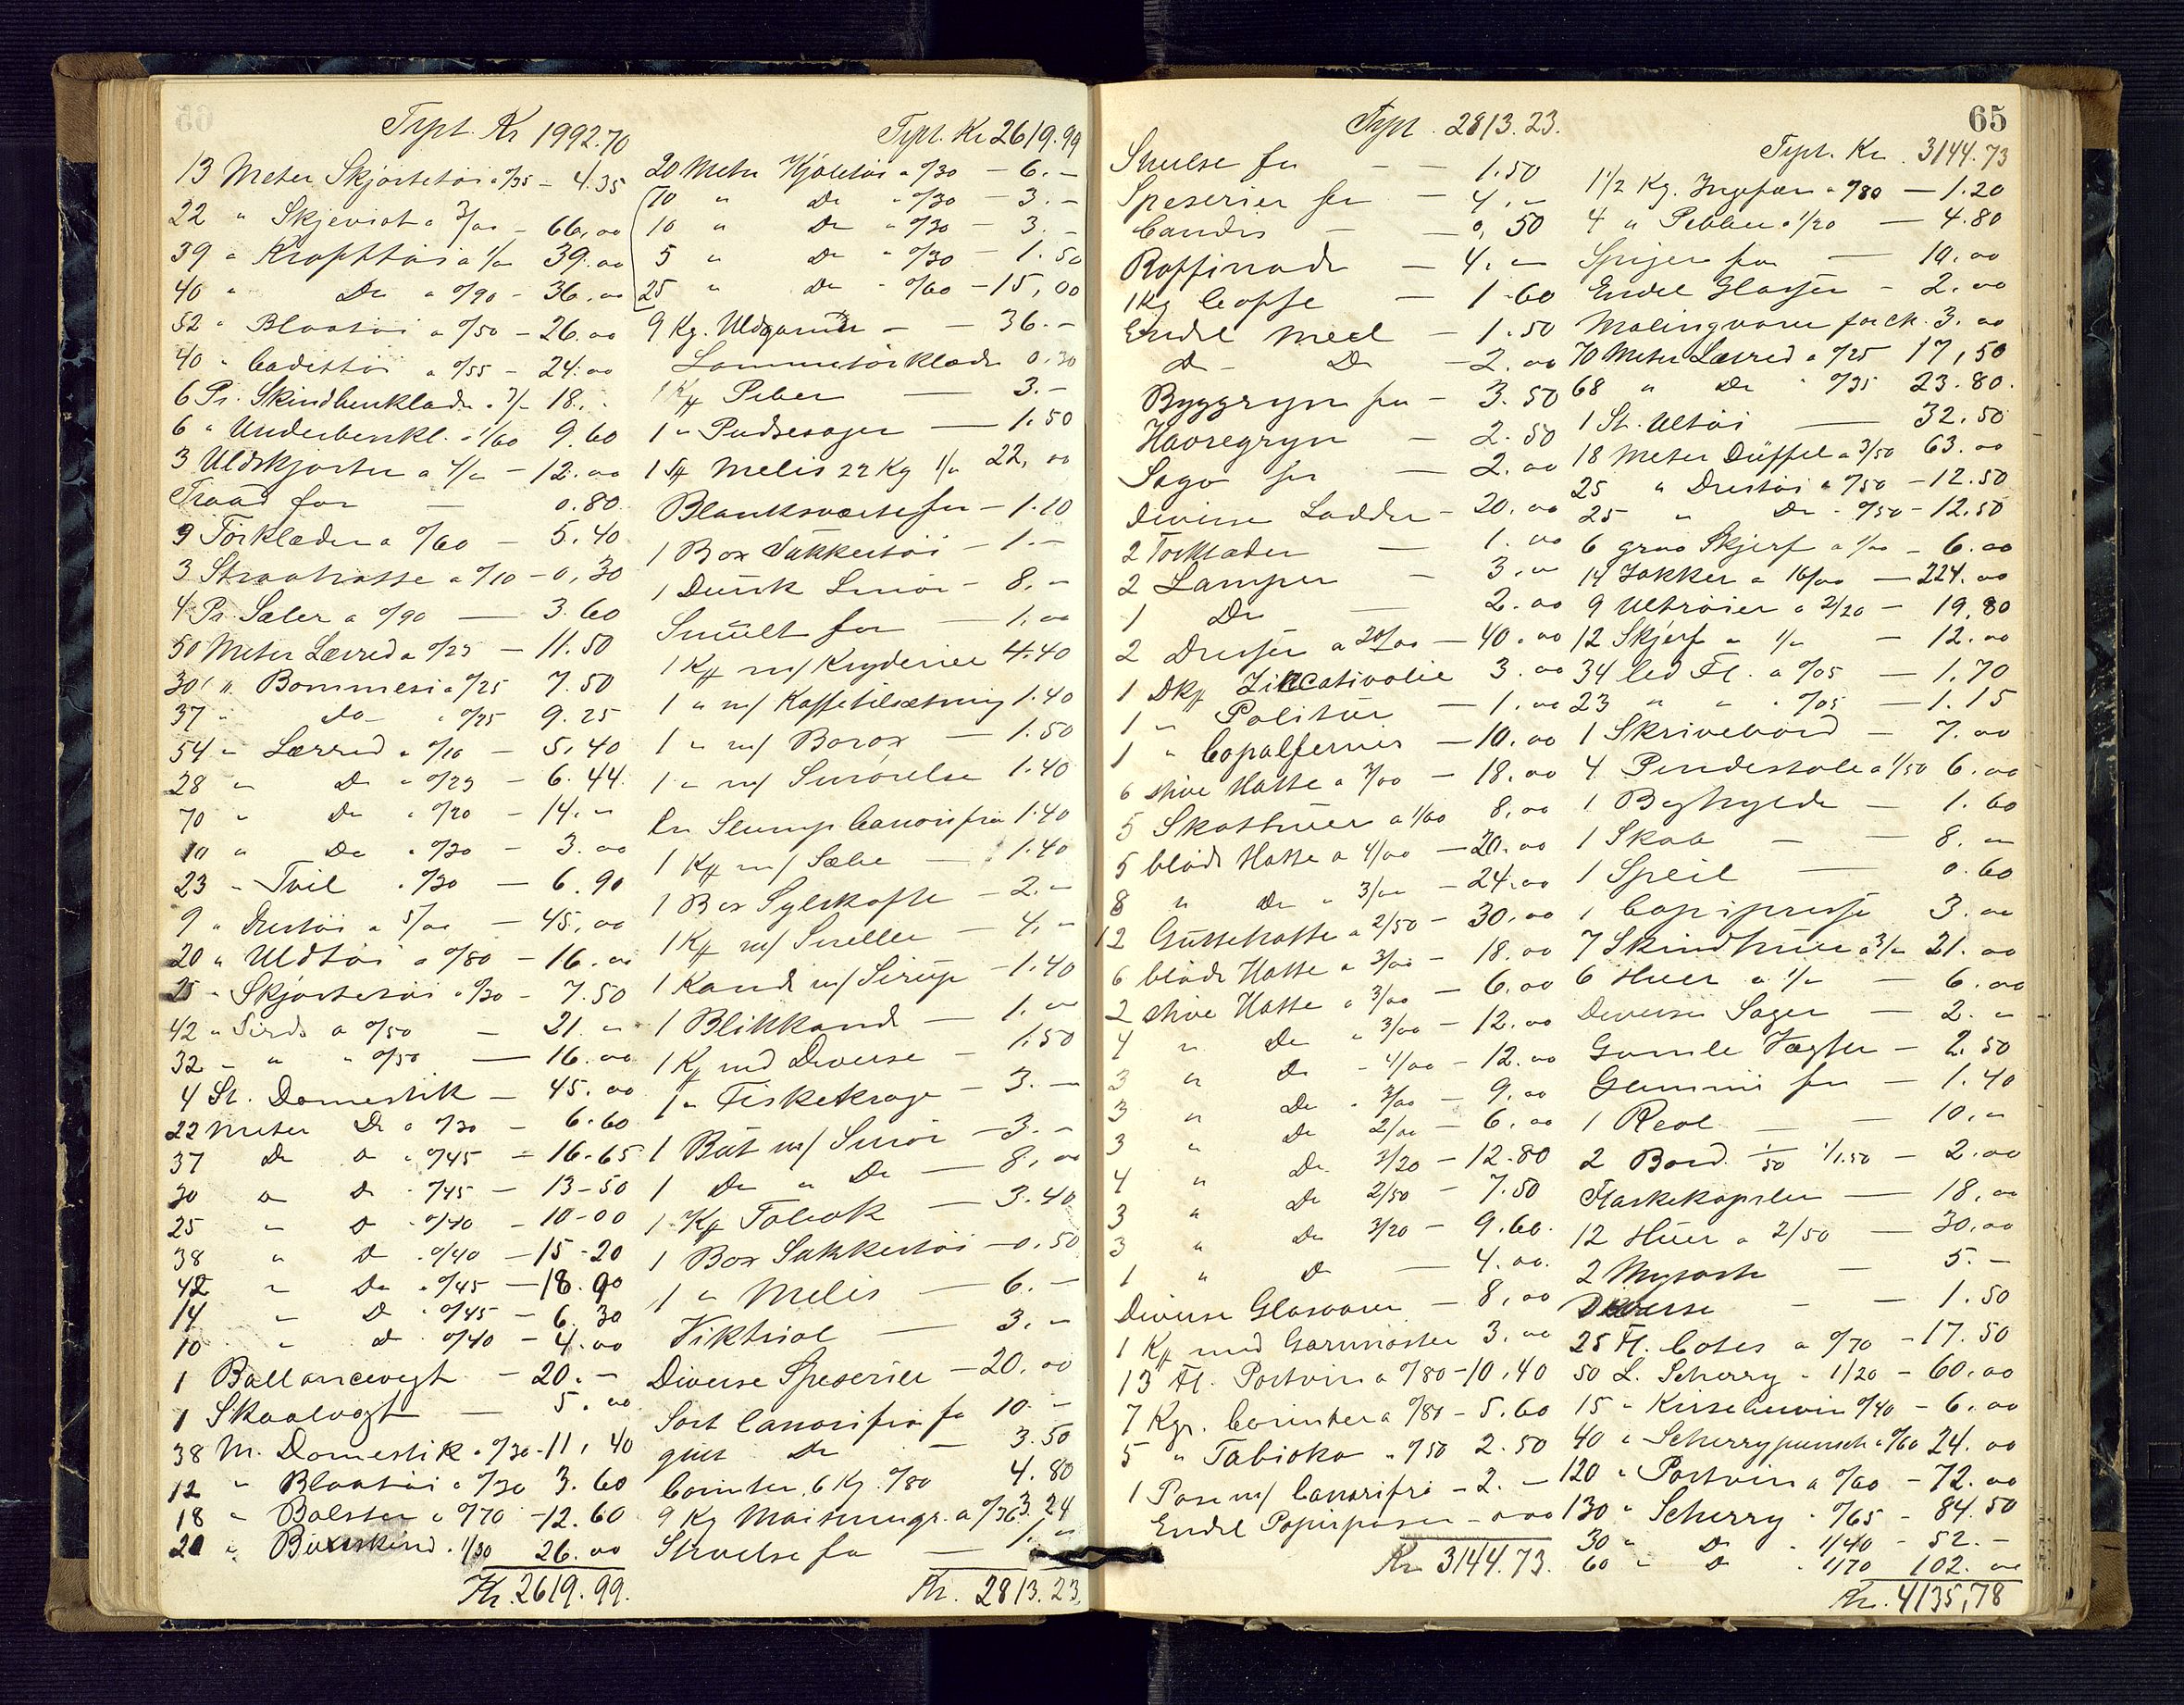 Trpt. Kr 1992.70
13 Meter Skjortetøi a 0/35 – 4.35
22 " Skjeviot a 3/00 – 66,00
39 " Kraftttøi a 1/" 39.00
40 " Do a 0/90 – 36.00
52 " Blaatøi a 0/50 – 26.00
40 " Cadettøi a 0/55 – 24.00
6 Pr. Skindbenklæder a 3/– 18.
6 " Underbenkl. a 1/60 9.60
3 Uldskjorter a 4/" – 12.00
Traad for — 0.80
9 Törklæder a 0/60 – 5.40
3 Straahatte a 0/10 – 0,30
4 Pr. Seler a 0/90 — 3.60
50 Meter Lærred a 0/23 – 11.50
30 " Bommesi a 0/25 7.50
37 " do " 0/25 9.25
54 " Lærred a 0/10 – 5,40
28 " Do a 0/23 – 6.44
70 " Do " 0/20 – 14."
10 " Do " 0/30 – 3.00
23 " Tvil " 0/30 – 6.90
9 " Drestøi a 5/00 – 45,00
20 " Uldtøi a 0/80 – 16.00
25 " Skjortetøi a 0/30 – 7.50
42 " Sirds a 0/50 – 21."
32 " " " 0/50 — 16.00
4 St. Domestik – 45.00
22 Meter Do a 0/30 – 6.60
37 Do Do " 0/45 – 16.65
30 " Do " 0/45 – 13-50
25 " Do " 0/40 – 10-00
38 " Do " 0/40 – 15-20
42 " Do " 0/45 – 18.90
14 " Do " 0/45 – 6.30
10 " Do " 0/40 – 4.00
1 Ballancevegt – 20.–
1 Skaalvegt — 5.00
38 M. Domestik a 0/30 – 11,40
12 " Blaatøi a 0/30 3.60
18 " Bolster a 0/70 – 12.60
20 " Buxeskind " 1/30 26.00
Kr. 2619.99.
Trpt. Kr 2619.99
20 Meter Kjoletøi a 0/30 – 6.–
10 " Do " 0/30 – 3.–
10 " Do " 0/30 – 3.–
5 " Do " 0/30 – 1.50
25 " Do " 0/60 – 15,00
9 Kg. Uldgarn – — 36.–
Lommetörklæde 0.30
1 Kff Peber — 3.–
1 " Pudsesager — 1.50
1 Sff Melis 22 Kg 1/" 22,00
Blanksværte for – 1.10
1 Box Sukkertøi – 1.–
1 Dunk Smör – 8.–
Smult for — 1.00
1 Kff m/ Kryderier 4.40
1 " m/ Kaffetilsætning 1.40
1 " m/ Borax — 1.50
1 " m/ Smörelse 1.40
En Slump Canarifrø 1.40
1 Kff m/ Sæbe — 1.40
1 Box Sylekaffe – 2.–
1 Kff m/ Sneller – 4,–
1 Kande m/ Sirup – 1.40
1 Blikkande — 1.–
1 Kff med Diverse – 1,50
1 " Fiskekroge – 3.–
1 Bøt m/ Smör – 3.–
1 Do " Do — 8,00
1 Kff Tobak — 3.40
1 Box Sukkertøi – 0,50
1 " Melis — 6.–
Viktriol — 3.–
Diverse Speserier – 20,00
Sort Canarifrø fo 10.–
gult Do – 3.50
Corinter, 6 Kg 0/80 4.80
9 Kg Maismengr. a 0/36 3,24
Strøelse for — 1.–
Kr. 2813.23.
65
Trpt. 2813.23.
Snelse for – — 1.50
Speserier for – 4,–
Candis – — 0,50
Raffinade — 4."
1 Kg Caffe — 1-60
Endel Meel – 1.50
Do – Do – 2.00
Byggryn for – 3.50
Havregryn – 2.50
Sago for — 2.00
Diverse Lodder – 20.00
2 Torklæder — 1.00
2 Lamper – 3."
1 Do — 2.00
2 Dresser a 20/00 – 40.00
1 Dkff Zincativolie 3.00
1 " Politur – 1.00
1 " Copalfernis – 10.00
6 stive Hatte a 3/00 – 18.00
5 Skathuer a 1/60 8,00
5 bløde Hatte a 4/00 – 20.00
8 " Do " 3/00 – 24.00
12 Guttehatte a 2/50 – 30.00
6 bløde Hatte a 3/00 – 18.00
2 stive Hatte a 3/00 – 6.00
4 " Do " 3/00 – 12.00
3 " Do – 4/00 – 12.00
3 " Do " 3/00 – 9.00
3 " Do 2/00 – 6.00
4 " Do 3/20 – 12.80
3 " Do 2/50 – 7.50
3 " Do 3/20 – 9.60.
1 " Do — 4.00.
Diverse Glasvarer – 8,00
1 Kff med Garnnøster 3.00
13 Fl. Portvin a 0/80 – 10,40
7 Kgr. Corinter a 0/80 – 5.60
5 " Tabioka " 0/50 2.50
1 Pose m/ Canarifrø – 2.–
Endel Papirposer –
Kr 3144.73.
Trpt. Kr. 3144.73
1 1/2 Kg. Ingefær a 0/80 – 1.20
4 " Pebber a 1/20 – 4.80
Spiger for — 19.00
Endel Glasser – 2.00
Malingvare for ch. 3.00
70 Meter Lærred a 0/25 17,50
68 " Do " 0/35 23.80.
1 St. Ultøi — 32.50
18 Meter Düffel a 3/50 63.00
25 " Drestøi a 0/50 – 12.50
25 " Do " 0/50 – 12,50
6 graa Skjerf a 1/00 – 6.00
14 Jakker a 16/00 – 224.00
9 Ultrøier a 2/20 – 19,80
12 Skjerf a 1/" – 12.00
34 led Fl. a 0/05 – 1,70
23 " " " 0/05 – 1.15
1 Skrivebord – 7.00
4 Pindestole a 1/50 6.00
1 Boghylde – 1.60
1 Skab — 8."
1 Speil — 0.60
1 Copipresse 3.00
7 Skindhuer a 3/" 21.00
6 Huer a 1/" – 6.00
Diverse Sager – 2."
Gamle Vægter – 2.50
Gummi for – 1.40
1 Reol — 10."
2 Bord. 1/50 1/1.50 – 2.00
Flaskekapsler — 18,00
12 Huer a 2/50 – 30,00
2 Mysoste – 5.–
Diverse – – 1.50
25 Fl. Cotes a 0/70 – 17.50
50 L. Scherry " 1/20 – 60.00
15 " Kirsebærvin 0/40 – 6.00
40 " Scherrypunsch a 0/60 24.00
120 " Portvin a 0/60 – 72.00
130 " Scherry " 0/65 – 84.50
30 " Do " 1/40 – 52.–
60 " Do " 1/70 102.00
Kr. 4135,78